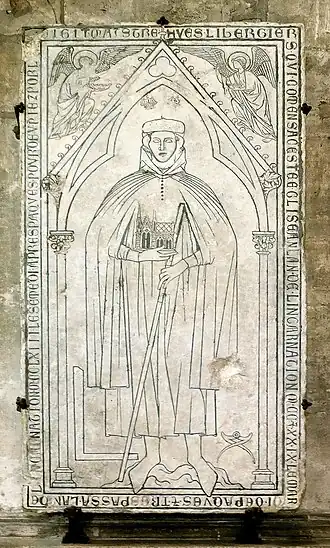 CI GIT MAISTRE HVES LIBERGIER
S QVI COMENSA CESTE EGLISE AN LAN DE LINCARNATION M CC XX IX LE MAR
DI DE PAQVES TRESPASSA LAN DE
LINCARNATION MCCLXIII LE SEMEDI APRES PAQVES POVR DEV PIEZ POR